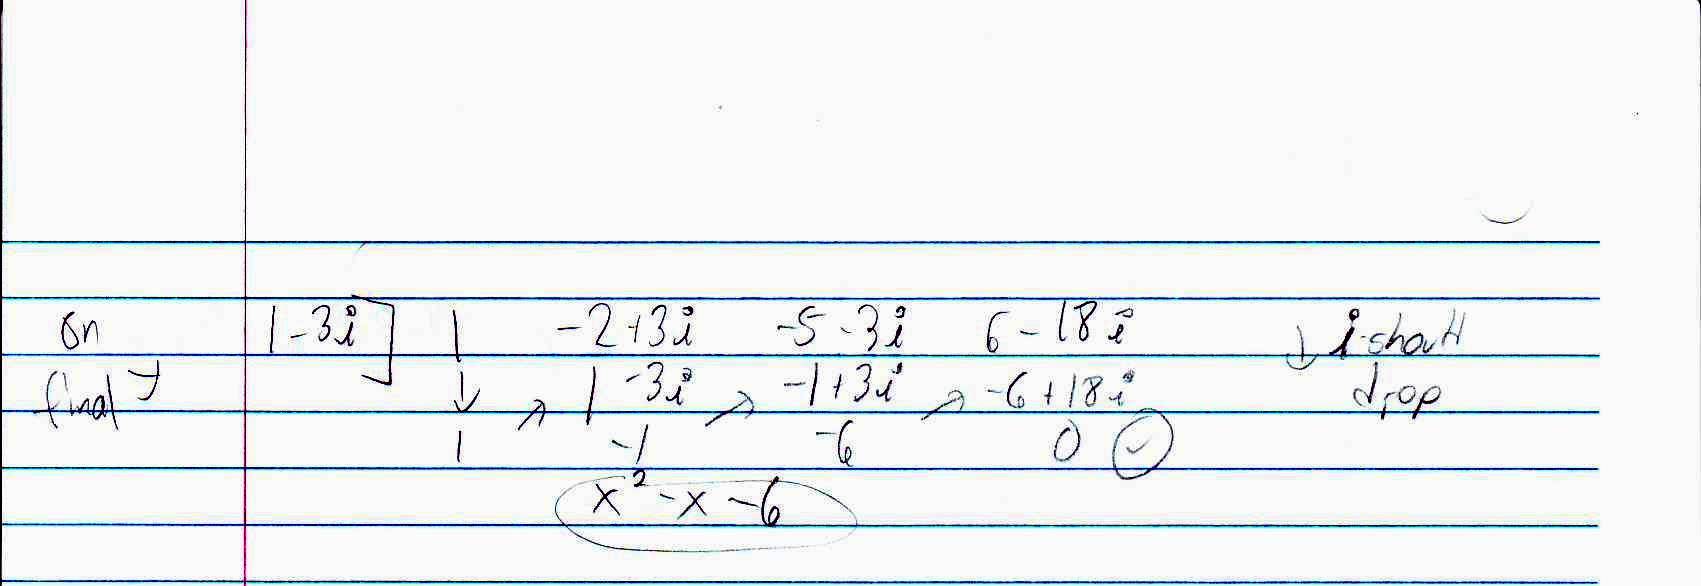 on 1-3i] 1 -2+3i -5-3i 6-18i ↓ i-should
final → ↓ ↗ 1-3i ↗ -1+3i ↗ -6+18i drop
1 -1 -6 0 ✓
x² - x - 6